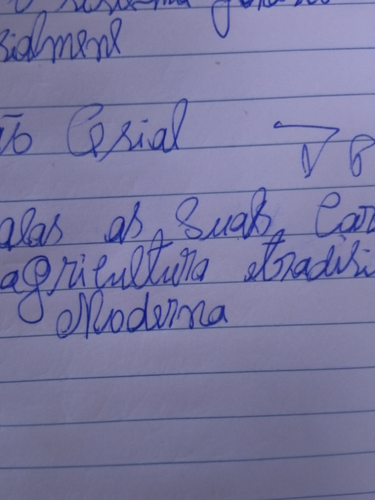 o sistema
sialmene
ão Cesial
alas as suas, Car
agricultura tradisi
Moderna